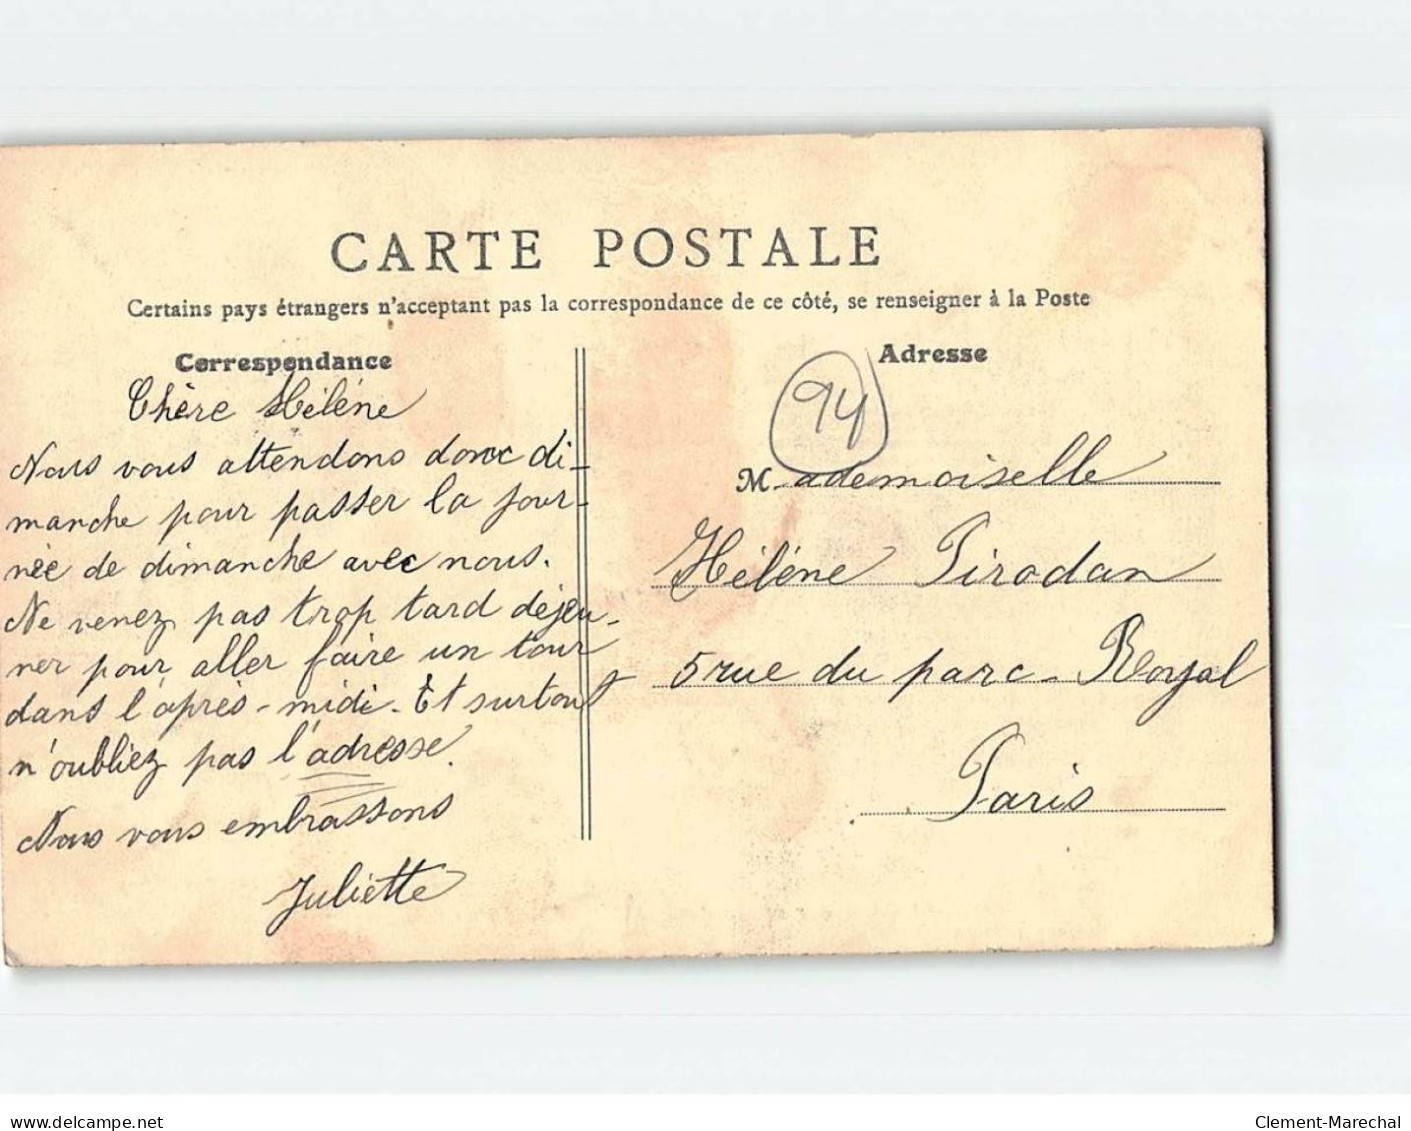 CARTE POSTALE
Certains pays étrangers n'acceptant pas la correspondance de ce côté, se renseigner à la Poste
Correspondance
Chère Hélène
Nous vous attendons donc di-
manche pour passer la jour-
née de dimanche avec nous.
Ne venez pas trop tard déjeu-
ner pour aller faire un tour
dans l'après-midi. Et surtout
n'oubliez pas l'adresse.
Nous vous embrassons
Juliette
Adresse
94
Mademoiselle
Hélène Pirodan
5 rue du parc-Royal
Paris
www.delcampe.net
Clement-Marechal